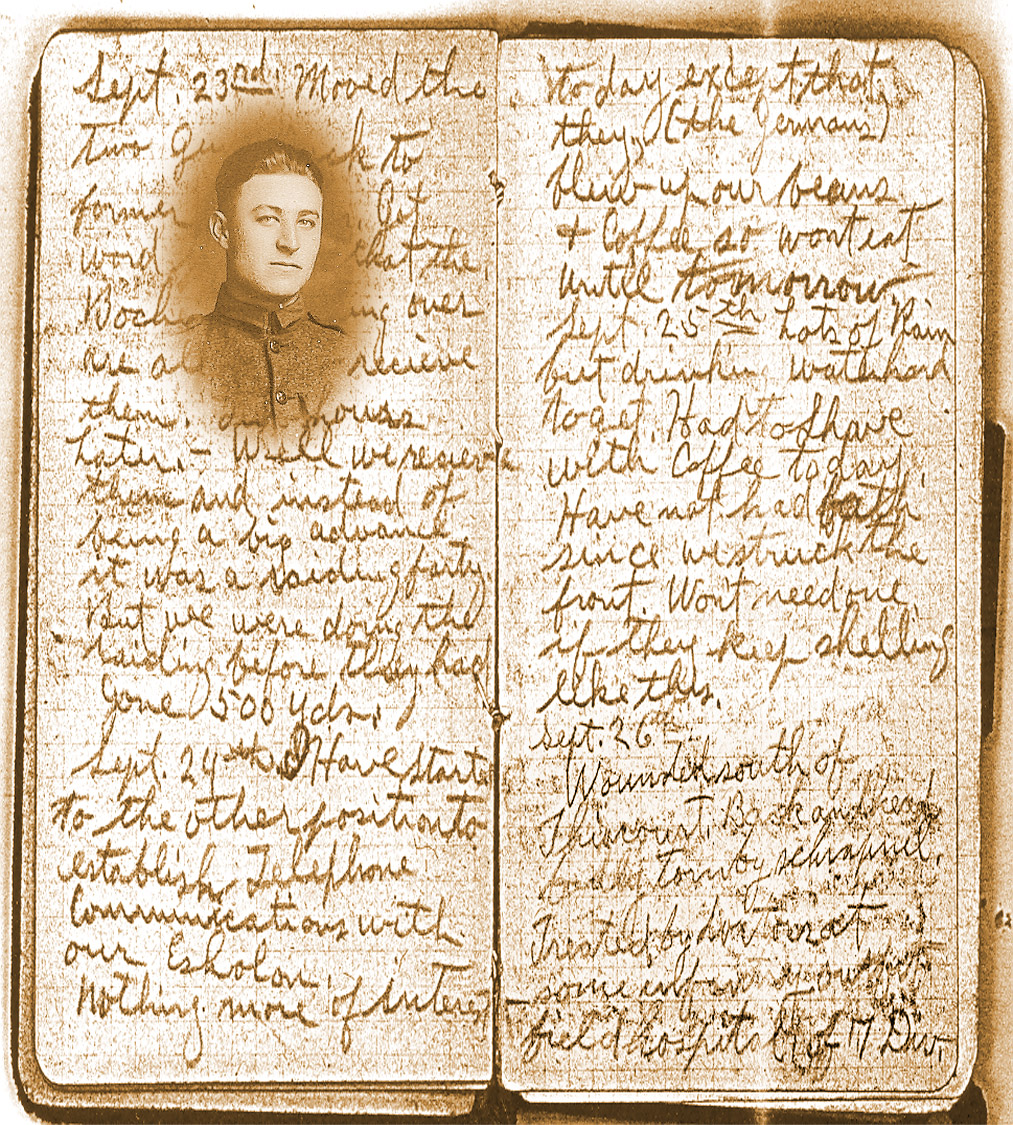 Sept. 23rd. Moved the
two Gu ck to
former Got
word that the
Boche ing over
are al recieve
them. hours
Later. - Well we recieve
them and instead of
being a big advance
it was a raiding party
But we were doing the
raiding before they had
gone 500 yds.
Sept. 24th. Have start
to the other position to
establish Telephone
Communications with
our Eshelon.
Nothing more of interes
today except that
they, (the Germans)
blew up our beans
& Coffee so wont eat
until tomorrow.
Sept. 25th Lots of Rain
but drinking water hard
to get. Had to shave
with Coffee today.
Have not had bath
since we struck the
front. Won't need one
if they keep shelling
like this.
Sept. 26th.
Wounded south of
Thiaucourt. Back and head
badly torn by schrapnel.
Treated by at
some
field hospital of 7 Div.